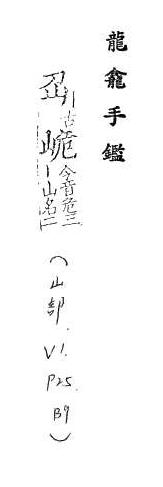 龍龕手鑑
古峗今音危三丨山名二
（山部．V1．P25．B9）